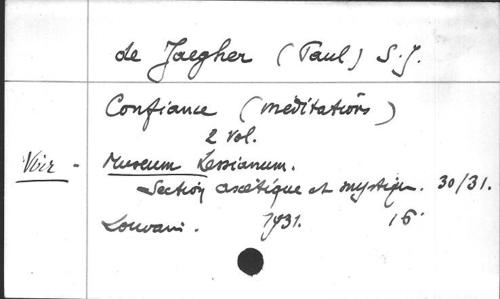 de Jaegher (Paul) S.J.
Confiance (méditations)
2 vol.
Voir - Museum Lessianum.
Section ascétique et mystique. 30/31.
Louvain. 1931. 16°